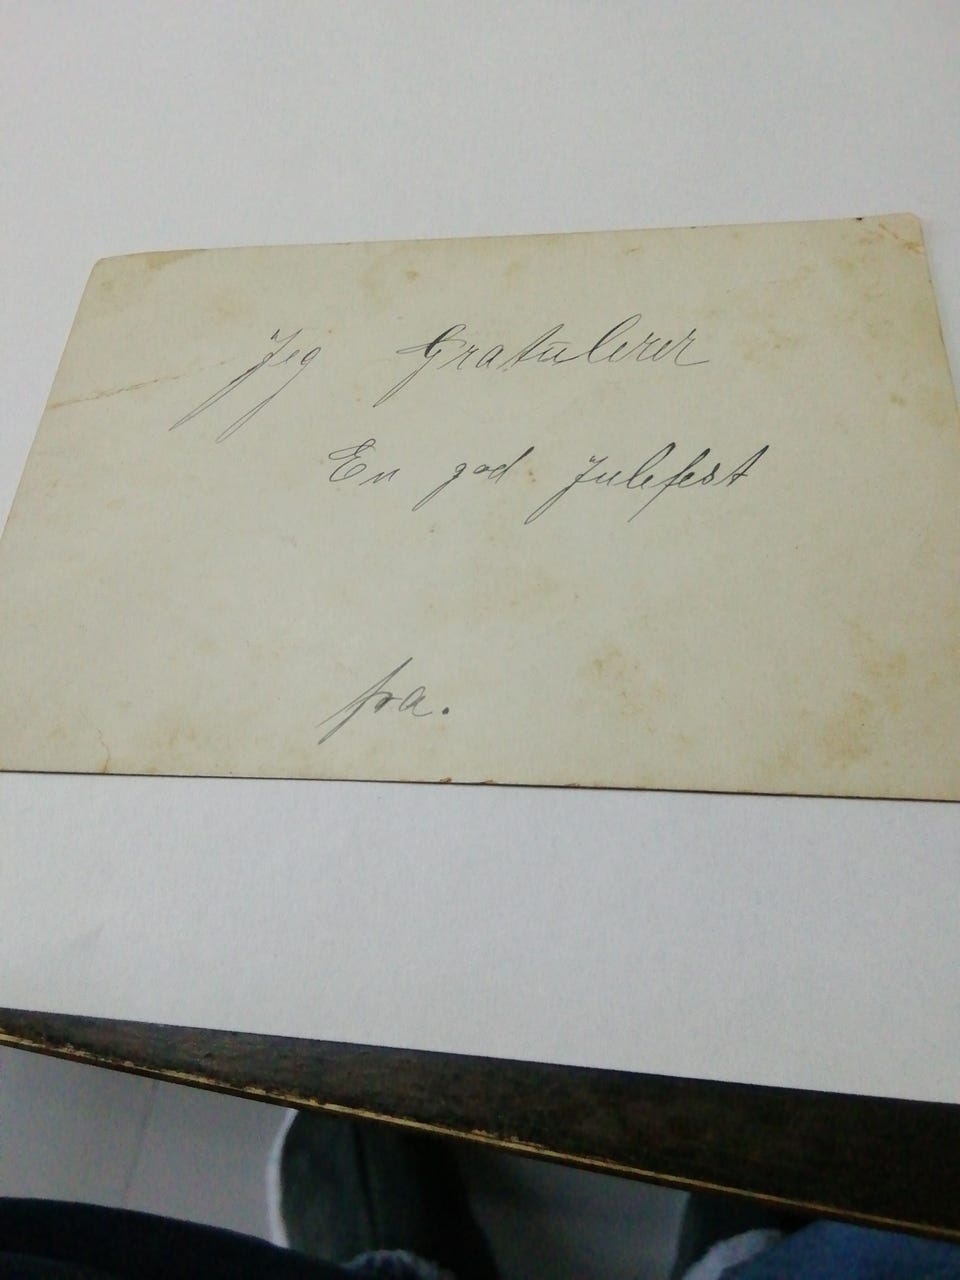 Jeg Gratulerer
En god Julefest
fra.